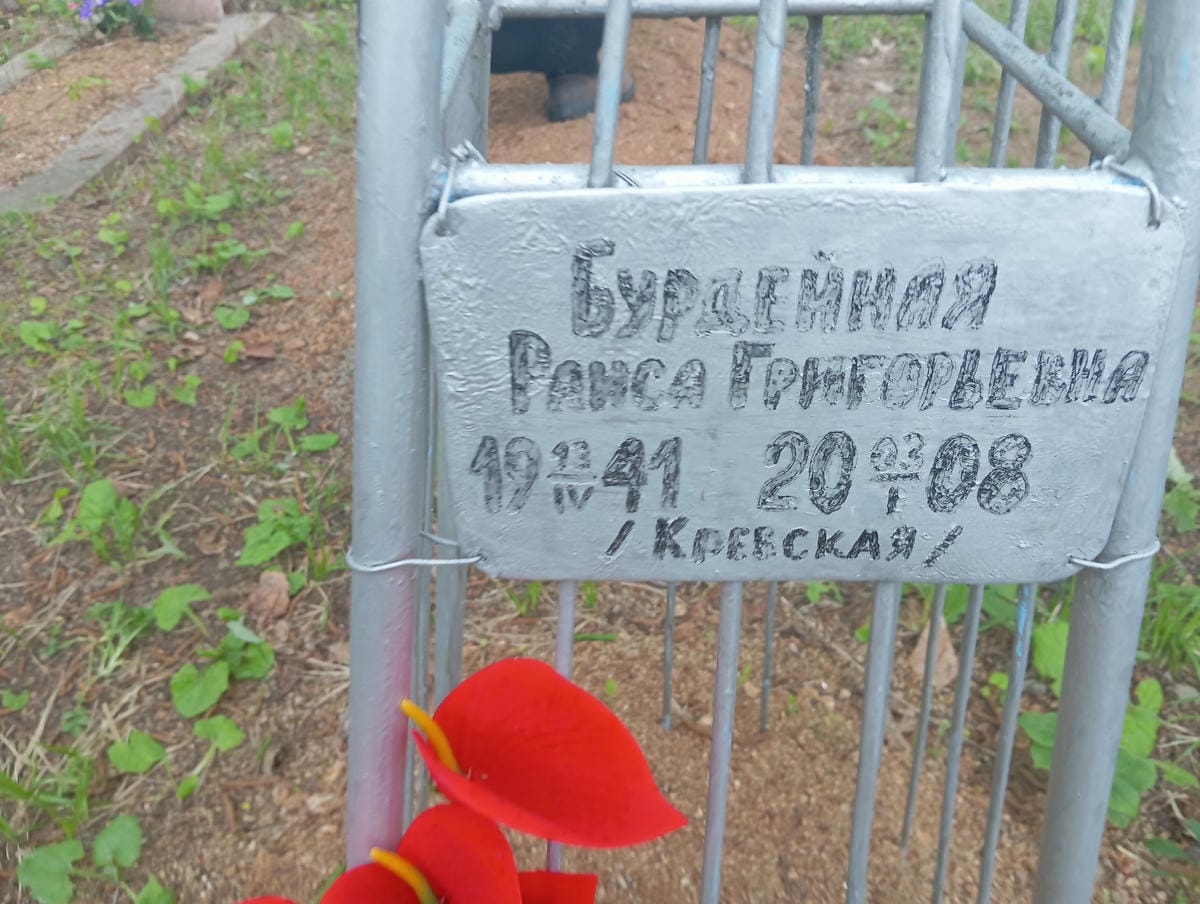 Бурдейная
Раиса Григорьевна
19 13/IV 41 20 03/I 08
/Кревская/